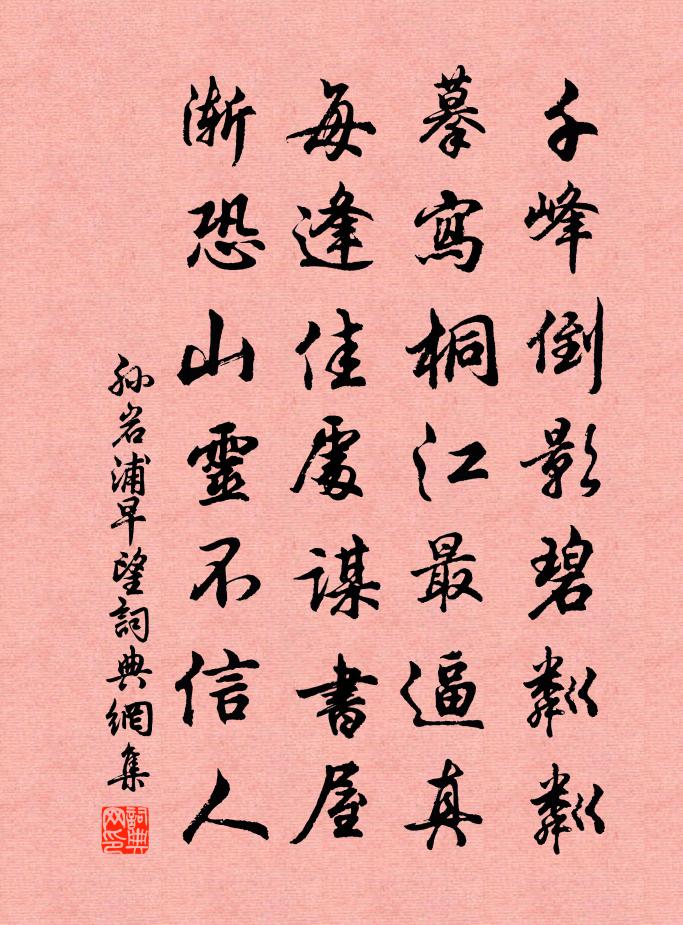 千峰倒影碧粼粼
摹寫桐江最逼真
每逢佳處謀書屋
漸恐山靈不信人
孙岩浦早望詞典網集
詞典网印